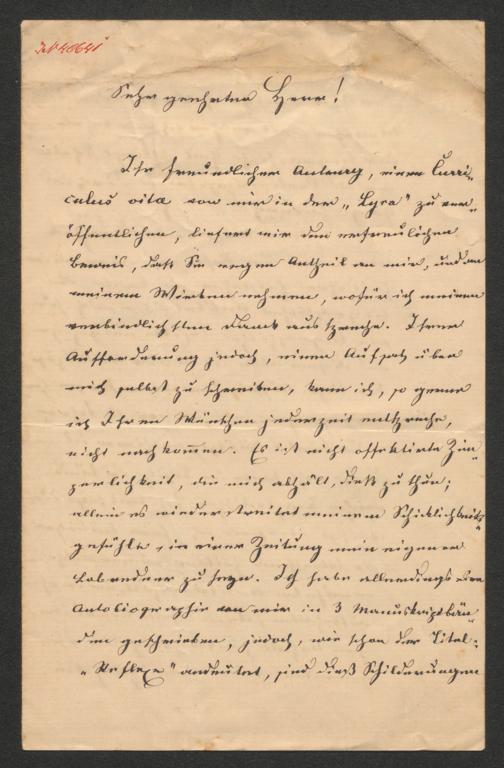 Sehr geehrter Herr!
Ihr freundlicher Antrag, einen Curri-
culus vitae von mir in der „Lyra" zu ver-
öffentlichen, liefert mir den erfreulichen
Beweis, daß Sie regen Antheil an mir, und an
meinem Wirken nehmen, wofür ich meinen
verbindlichsten Dank ausspreche. Ihrer
Aufforderung jedoch, einen Aufsatz über
mich selbst zu schreiben, kann ich, so gerne
ich Ihren Wünschen jederzeit entspreche,
nicht nachkommen. Es ist nicht affektirte Zim-
perlichkeit, die mich abhält, dieß zu thun;
allein es wiederstreitet meinem Schicklichkeits-
gefühle, in einer Zeitung mein eigener
Lobredner zu seyn. Ich habe allerdings eine
Autobiographie von mir in 3 Manuskriptbän-
den geschrieben, jedoch, wie schon der Titel:
„Reflexe" andeutet, sind dieß Schilderungen